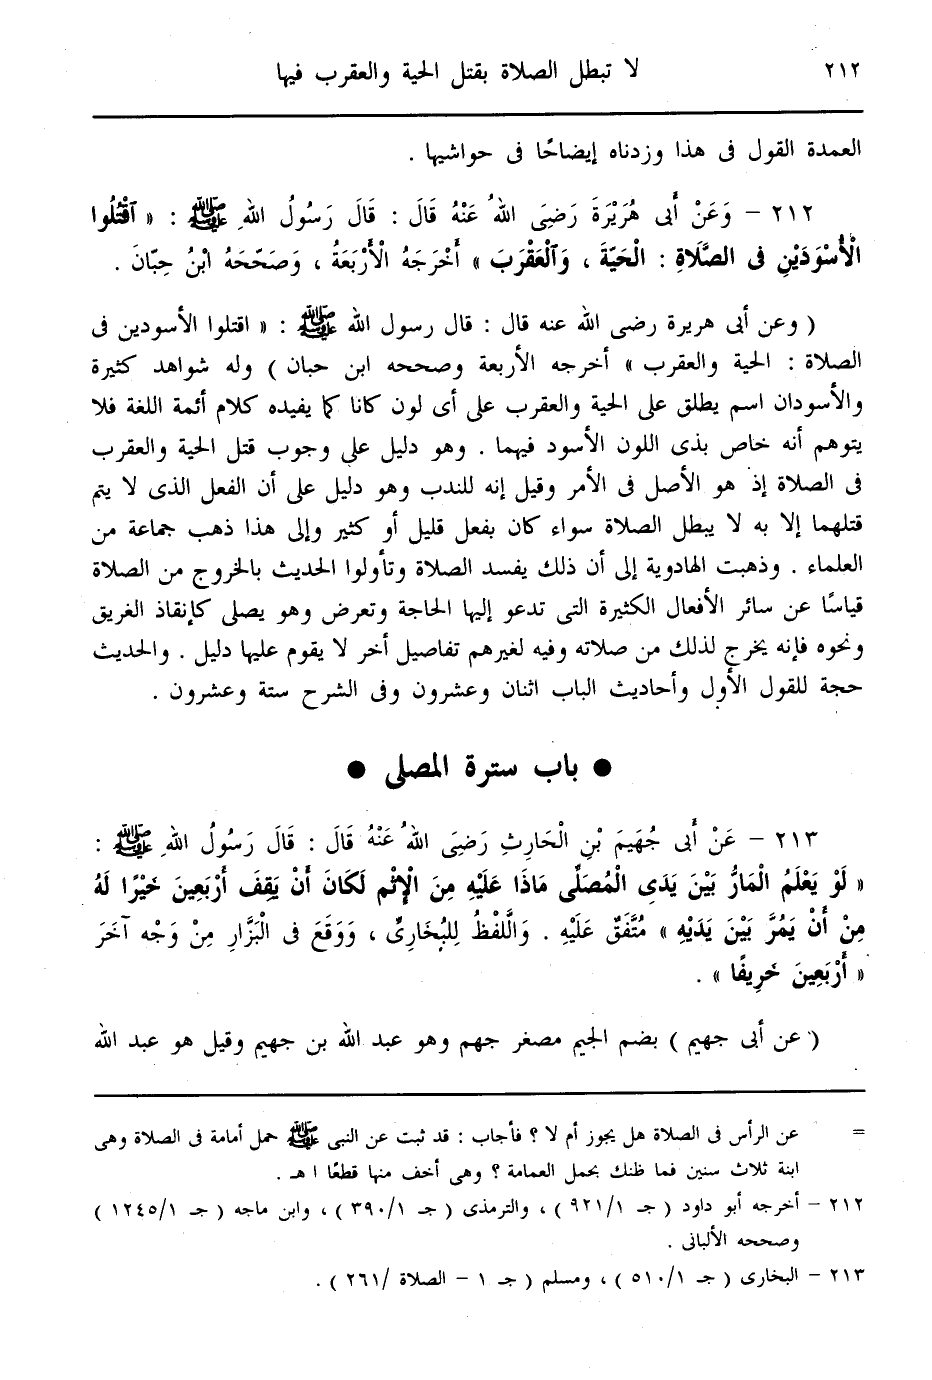 ٢١٢ لا تبطل الصلاة بقتل الحية والعقرب فيها
العمدة القول فى هذا وزدناه إيضاحًا فى حواشيها .
٢١٢ – وَعَنْ أَبِى هُرَيْرَةَ رَضِىَ اللهُ عَنْهُ قَالَ : قَالَ رَسُولُ اللهِ ﷺ : « اَقْتُلُوا
الْأَسْوَدَيْنِ فى الصَّلَاةِ : الْحَيَّةَ ، وَالْعَقْرَبَ » أَخْرَجَهُ الْأَرْبَعَةُ ، وَصَحَّحَهُ ابْنُ حِبَّانَ .
( وعن أبى هريرة رضى الله عنه قال : قال رسول الله ﷺ : « اقتلوا الأسودين فى
الصلاة : الحية والعقرب » أخرجه الأربعة وصححه ابن حبان ) وله شواهد كثيرة
والأسودان اسم يطلق على الحية والعقرب على أى لون كانا كما يفيده كلام أئمة اللغة فلا
يتوهم أنه خاص بذى اللون الأسود فيهما . وهو دليل على وجوب قتل الحية والعقرب
فى الصلاة إذ هو الأصل فى الأمر وقيل إنه للندب وهو دليل على أن الفعل الذى لا يتم
قتلهما إلا به لا يبطل الصلاة سواء كان بفعل قليل أو كثير وإلى هذا ذهب جماعة من
العلماء . وذهبت الهادوية إلى أن ذلك يفسد الصلاة وتأولوا الحديث بالخروج من الصلاة
قياسًا عن سائر الأفعال الكثيرة التى تدعو إليها الحاجة وتعرض وهو يصلى كإنقاذ الغريق
ونحوه فإنه يخرج لذلك من صلاته وفيه لغيرهم تفاصيل أخر لا يقوم عليها دليل . والحديث
حجة للقول الأول وأحاديث الباب اثنان وعشرون وفى الشرح ستة وعشرون .
● باب سترة المصلى ●
٢١٣ – عَنْ أَبِى جُهَيمَ بْنِ الْحَارِثِ رَضِىَ اللهُ عَنْهُ قَالَ : قَالَ رَسُولُ اللهِ ﷺ :
« لَوْ يَعْلَمُ الْمَارُّ بَيْنَ يَدَىِ الْمُصَلِّى مَاذَا عَلَيْهِ مِنَ الْإِثْمِ لَكَانَ أَنْ يَقِفَ أَرْبَعِينَ خَيْرًا لَهُ
مِنْ أَنْ يَمُرَّ بَيْنَ يَدَيْهِ » مُتَّفَقٌ عَلَيْهِ . وَالَّلفْظُ لِلْبُخَارِىِّ ، وَوَقَعَ فى الْبَزَّارِ مِنْ وَجْه آخَرَ
« أَرْبَعِينَ خَرِيفًا » .
( عن أبى جهيم ) بضم الجيم مصغر جهم وهو عبد الله بن جهيم وقيل هو عبد الله
= عن الرأس فى الصلاة هل يجوز أم لا ؟ فأجاب : قد ثبت عن النبى ﷺ حمل أمامة فى الصلاة وهى
ابنة ثلاث سنين فما ظنك بحمل العمامة ؟ وهى أخف منها قطعًا ا هـ .
٢١٢ – أخرجه أبو داود ( جـ ٩٢١/١ ) ، والترمذى ( جـ ٣٩٠/١ ) ، وابن ماجه ( جـ ١٢٤٥/١ )
وصححه الألبانى .
٢١٣ – البخارى ( جـ ٥١٠/١ ) ، ومسلم ( جـ ١ – الصلاة /٢٦١ ) .